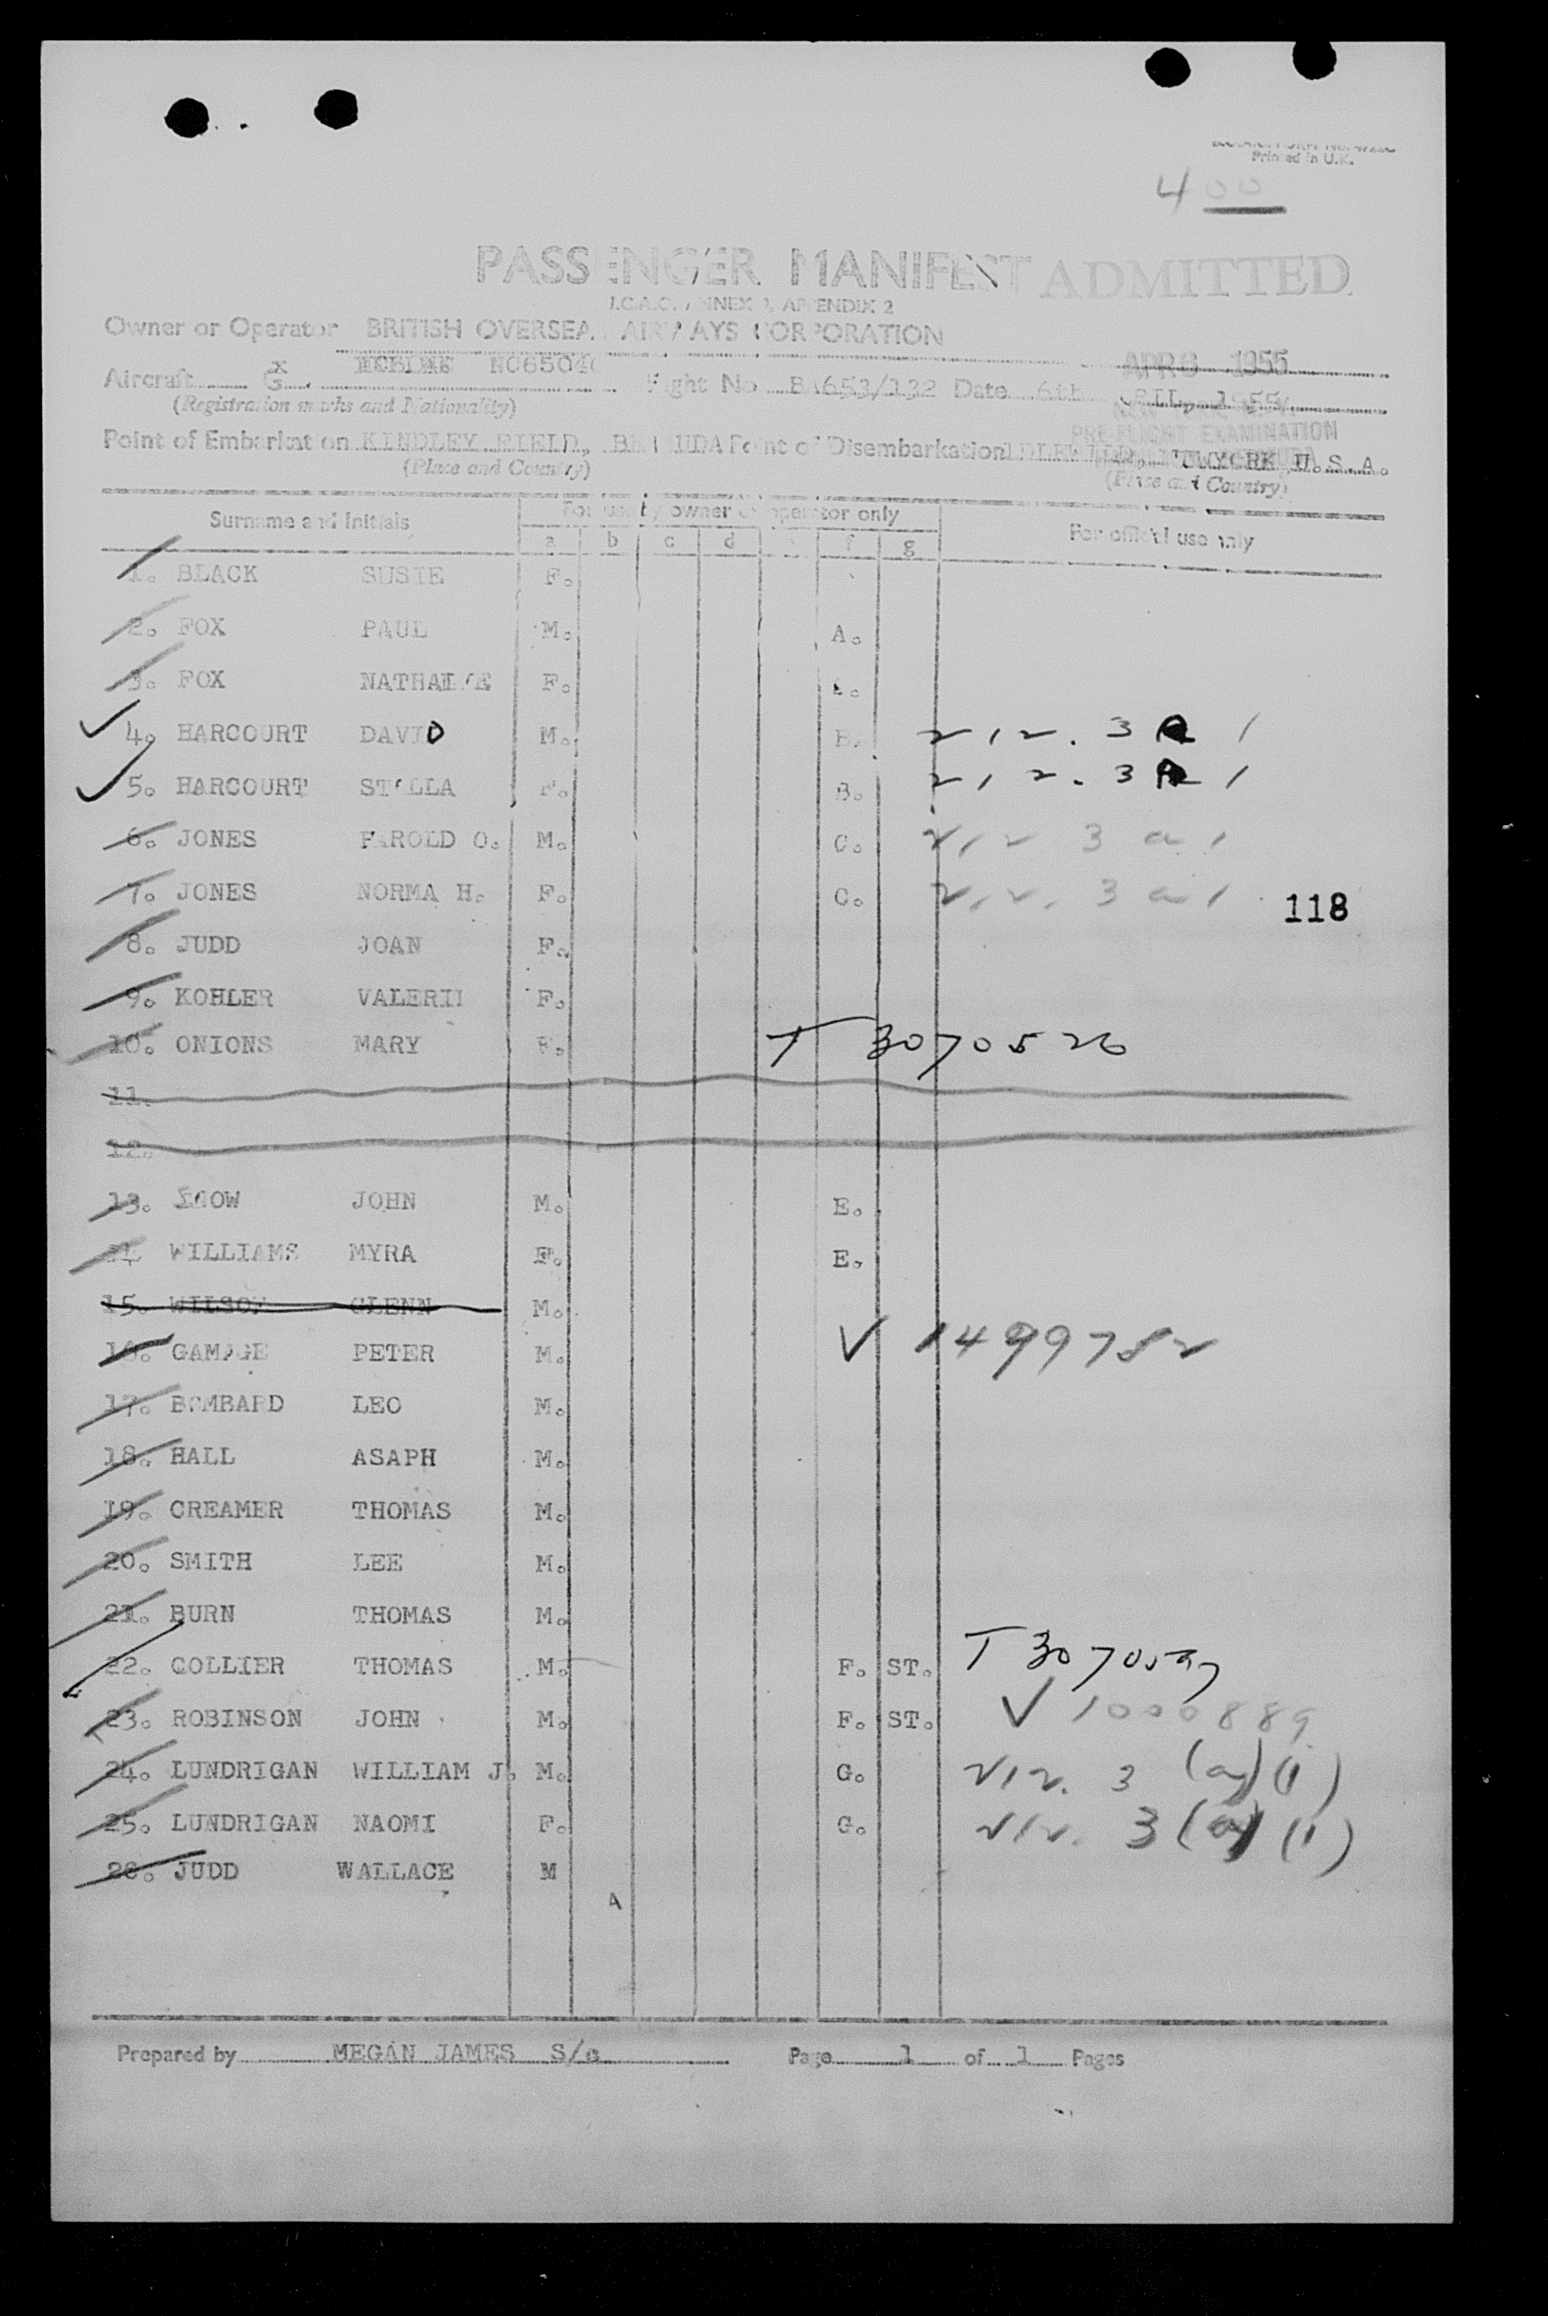 Printed in U.K.
400
PASSENGER MANIFEST ADMITTED
I.C.A.O. ANNEX 9, APPENDIX 2
Owner or Operator BRITISH OVERSEAS AIRWAYS CORPORATION
APR 6 1955
Aircraft G Flight No BA653/132 Date 6th APRIL, 1955
(Registration marks and Nationality)
PRE-FLIGHT EXAMINATION
Point of Embarkation KINDLEY FIELD, BERMUDA Point of Disembarkation NEW YORK U.S.A.
(Place and Country) (Place and Country)
Surname and Initials For use by owner or operator only For official use only
a b c d f g
1. BLACK SUSIE F.
2. FOX PAUL M. A.
3. FOX NATHALIE F.
4. HARCOURT DAVID M. B. 212.3A1
5. HARCOURT STELLA F. B. 212.3A1
6. JONES HAROLD O. M. C. 212 3 a 1
7. JONES NORMA H. F. C. 212. 3 a 1
118
8. JUDD JOAN F.
9. KOHLER VALERIE F.
10. ONIONS MARY F. T 3070526
11.
12.
13. SNOW JOHN M. E.
14. WILLIAMS MYRA F. E.
15. WILSON GLENN M.
16. GAMAGE PETER M. V 1499782
17. BOMBARD LEO M.
18. HALL ASAPH M.
19. CREAMER THOMAS M.
20. SMITH LEE M.
21. BURN THOMAS M.
22. COLLIER THOMAS M. F. ST. T
23. ROBINSON JOHN M. F. ST. V 1000889
24. LUNDRIGAN WILLIAM J. M. G. 212. 3 (a)(1)
25. LUNDRIGAN NAOMI F. G. 212. 3(a)(1)
26. JUDD WALLACE M
Prepared by MEGAN JAMES S/c Page 1 of 1 Pages